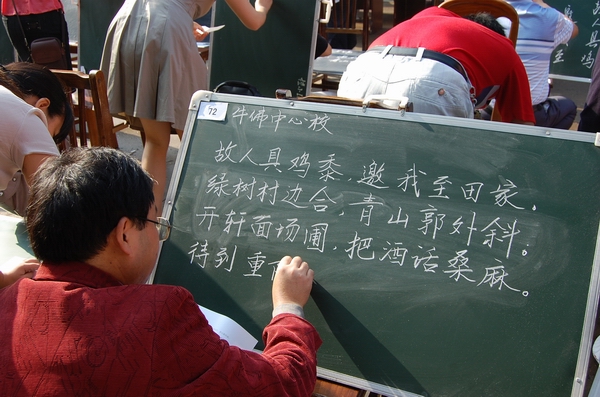 72
牛佛中心校
故人具鸡黍,邀我至田家.
绿树村边合,青山郭外斜。
开轩面场圃,把酒话桑麻。
待到重